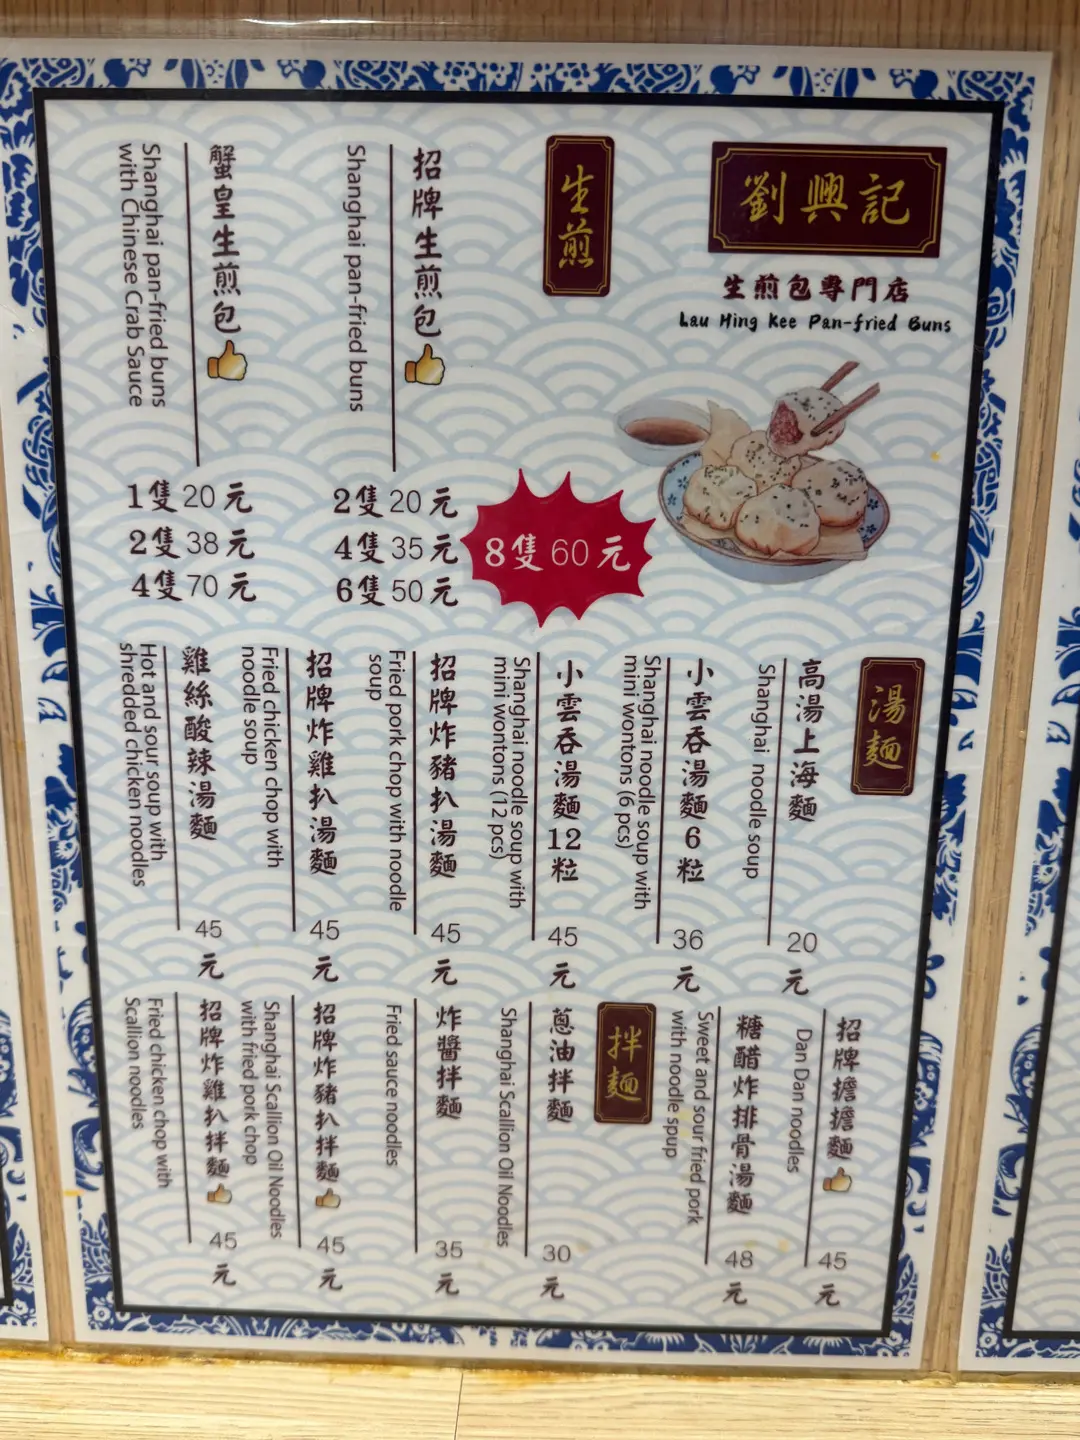 劉興記
生煎包專門店
Lau Hing Kee Pan-fried Buns
生煎
招牌生煎包
Shanghai pan-fried buns
2隻20元
4隻35元
6隻50元
8隻60元
蟹皇生煎包
Shanghai pan-fried buns
with Chinese Crab Sauce
1隻20元
2隻38元
4隻70元
湯麵
高湯上海麵
Shanghai noodle soup
20元
小雲吞湯麵6粒
Shanghai noodle soup with
mini wontons (6 pcs)
36元
小雲吞湯麵12粒
Shanghai noodle soup with
mini wontons (12 pcs)
45元
招牌炸豬扒湯麵
Fried pork chop with noodle
soup
45元
招牌炸雞扒湯麵
Fried chicken chop with
noodle soup
45元
雞絲酸辣湯麵
Hot and sour soup with
shredded chicken noodles
45元
招牌擔擔麵
Dan Dan noodles
45元
糖醋炸排骨湯麵
Sweet and sour fried pork
with noodle spup
48元
拌麵
蔥油拌麵
Shanghai Scallion Oil Noodles
30元
炸醬拌麵
Fried sauce noodles
35元
招牌炸豬扒拌麵
Shanghai Scallion Oil Noodles
with fried pork chop
45元
招牌炸雞扒拌麵
Fried chicken chop with
Scallion noodles
45元